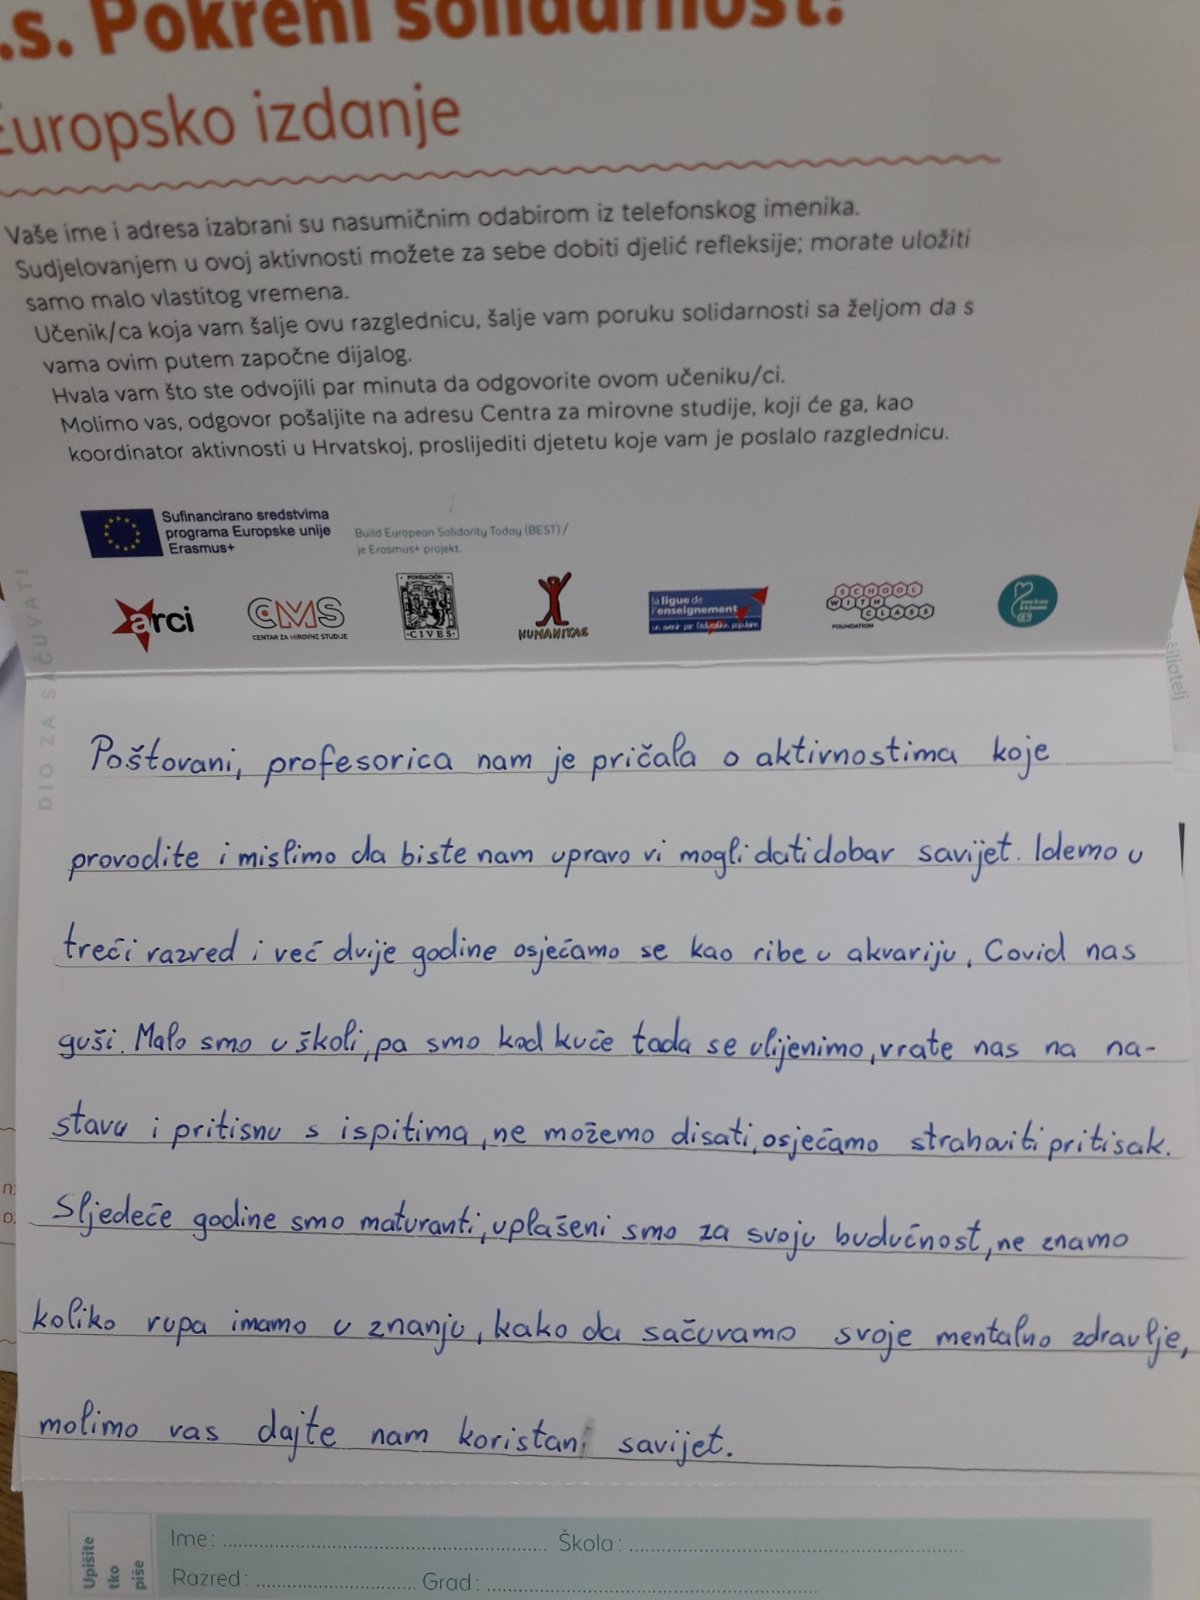 .s. Pokreni solidarnost!
Europsko izdanje
Vaše ime i adresa izabrani su nasumičnim odabirom iz telefonskog imenika.
Sudjelovanjem u ovoj aktivnosti možete za sebe dobiti djelić refleksije; morate uložiti
samo malo vlastitog vremena.
Učenik/ca koja vam šalje ovu razglednicu, šalje vam poruku solidarnosti sa željom da s
vama ovim putem započne dijalog.
Hvala vam što ste odvojili par minuta da odgovorite ovom učeniku/ci.
Molimo vas, odgovor pošaljite na adresu Centra za mirovne studije, koji će ga, kao
koordinator aktivnosti u Hrvatskoj, proslijediti djetetu koje vam je poslalo razglednicu.
Sufinancirano sredstvima
programa Europske unije
Erasmus+
Build European Solidarity Today (BEST) /
je Erasmus+ projekt.
arci
CMS
CENTAR ZA MIROVNE STUDIJE
FUNDACIÓN
CIVES
HUMANITAS
la ligue de
l'enseignement
un avenir par l'éducation populaire
SCHOOL
WITH
CLASS
FOUNDATION
DIO ZA SAČUVATI
Poštovani, profesorica nam je pričala o aktivnostima koje
provodite i mislimo da biste nam upravo vi mogli dati dobar savijet. Idemo u
treči razred i več dvije godine osječamo se kao ribe u akvariju, Covid nas
guši. Malo smo u školi, pa smo kod kuče tada se ulijenimo, vrate nas na na-
stavu i pritisnu s ispitima, ne možemo disati, osječamo strahoviti pritisak.
Sljedeče godine smo maturanti, uplašeni smo za svoju budučnost, ne znamo
koliko rupa imamo u znanju, kako da sačuvamo svoje mentalno zdravlje,
molimo vas dajte nam koristan savijet.
Upišite
tko
piše
Ime: Škola:
Razred: Grad: